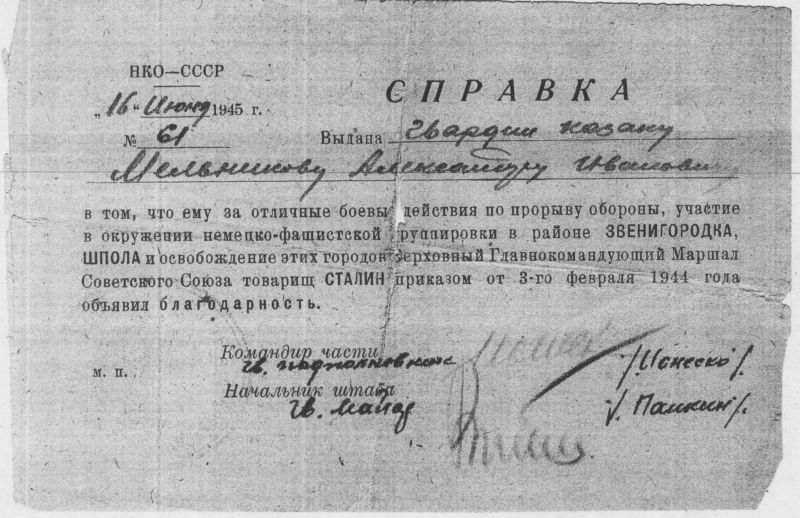 НКО—СССР
СПРАВКА
„16“ Июня 1945 г.
№ 61
Выдана Гвардии казаку
Мельникову Александру Ивановичу
в том, что ему за отличные боевы действия по прорыву обороны, участие
в окружении немецко-фашистской группировки в районе ЗВЕНИГОРОДКА,
ШПОЛА и освобождение этих городов Верховный Главнокомандующий Маршал
Советского Союза товарищ СТАЛИН приказом от 3-го февраля 1944 года
объявил благодарность.
Командир части
м. п.
гв. подполковник /Ионеско/
Начальник штаба
Гв. Майор /Пашкин/